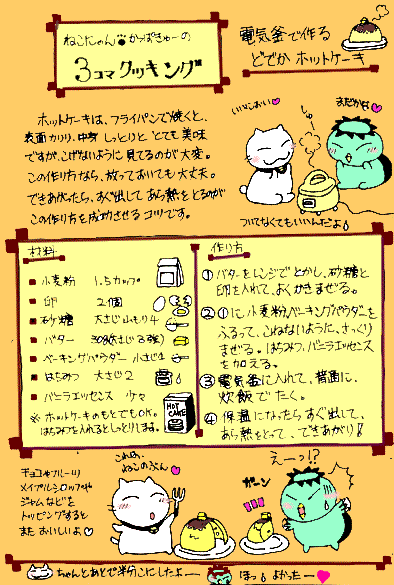 ねこにゃん かっぱきゅーの
3コマクッキング
電気釜で作る
どでか ホットケーキ
ホットケーキは、フライパンで焼くと、
表面カリリ、中身 しっとりと とても 美味
ですが、こげないように 見てるのが大変。
この作り方なら、放っておいても大丈夫。
できあがったら、すぐ出して あら熱をとるのが
この作り方を成功させる コツです。
いいにおい
まだかな
しゅー
ついてなくてもいいんだよ
材料
小麦粉 1.5カップ
卵 2個
砂糖 大さじ山もり4
バター 30g(大さじ3強)
ベーキングパウダー 小さじ1
はちみつ 大さじ2
バニラエッセンス 少々
※ ホットケーキのもとでもOK。
はちみつを入れるとしっとりします。
HOT
CAKE
作り方
① バターをレンジでとかし、砂糖と
卵を入れて、よくかきまぜる。
② ①に小麦粉、ベーキングパウダーを
ふるって、こねないように、さっくり
まぜる。はちみつ、バニラエッセンス
を加える。
③ 電気釜に入れて、普通に、
炊飯でたく。
④ 保温になったら すぐ出して、
あら熱をとって、できあがり!
チョコやフルーツ
メイプルシロップや
ジャムなどを
トッピングすると
また おいしいよ
これは、
ねこのぶん
えーっ!?
ガーン
ちゃんとあとで半分こにしたよー
ほっ よかったー